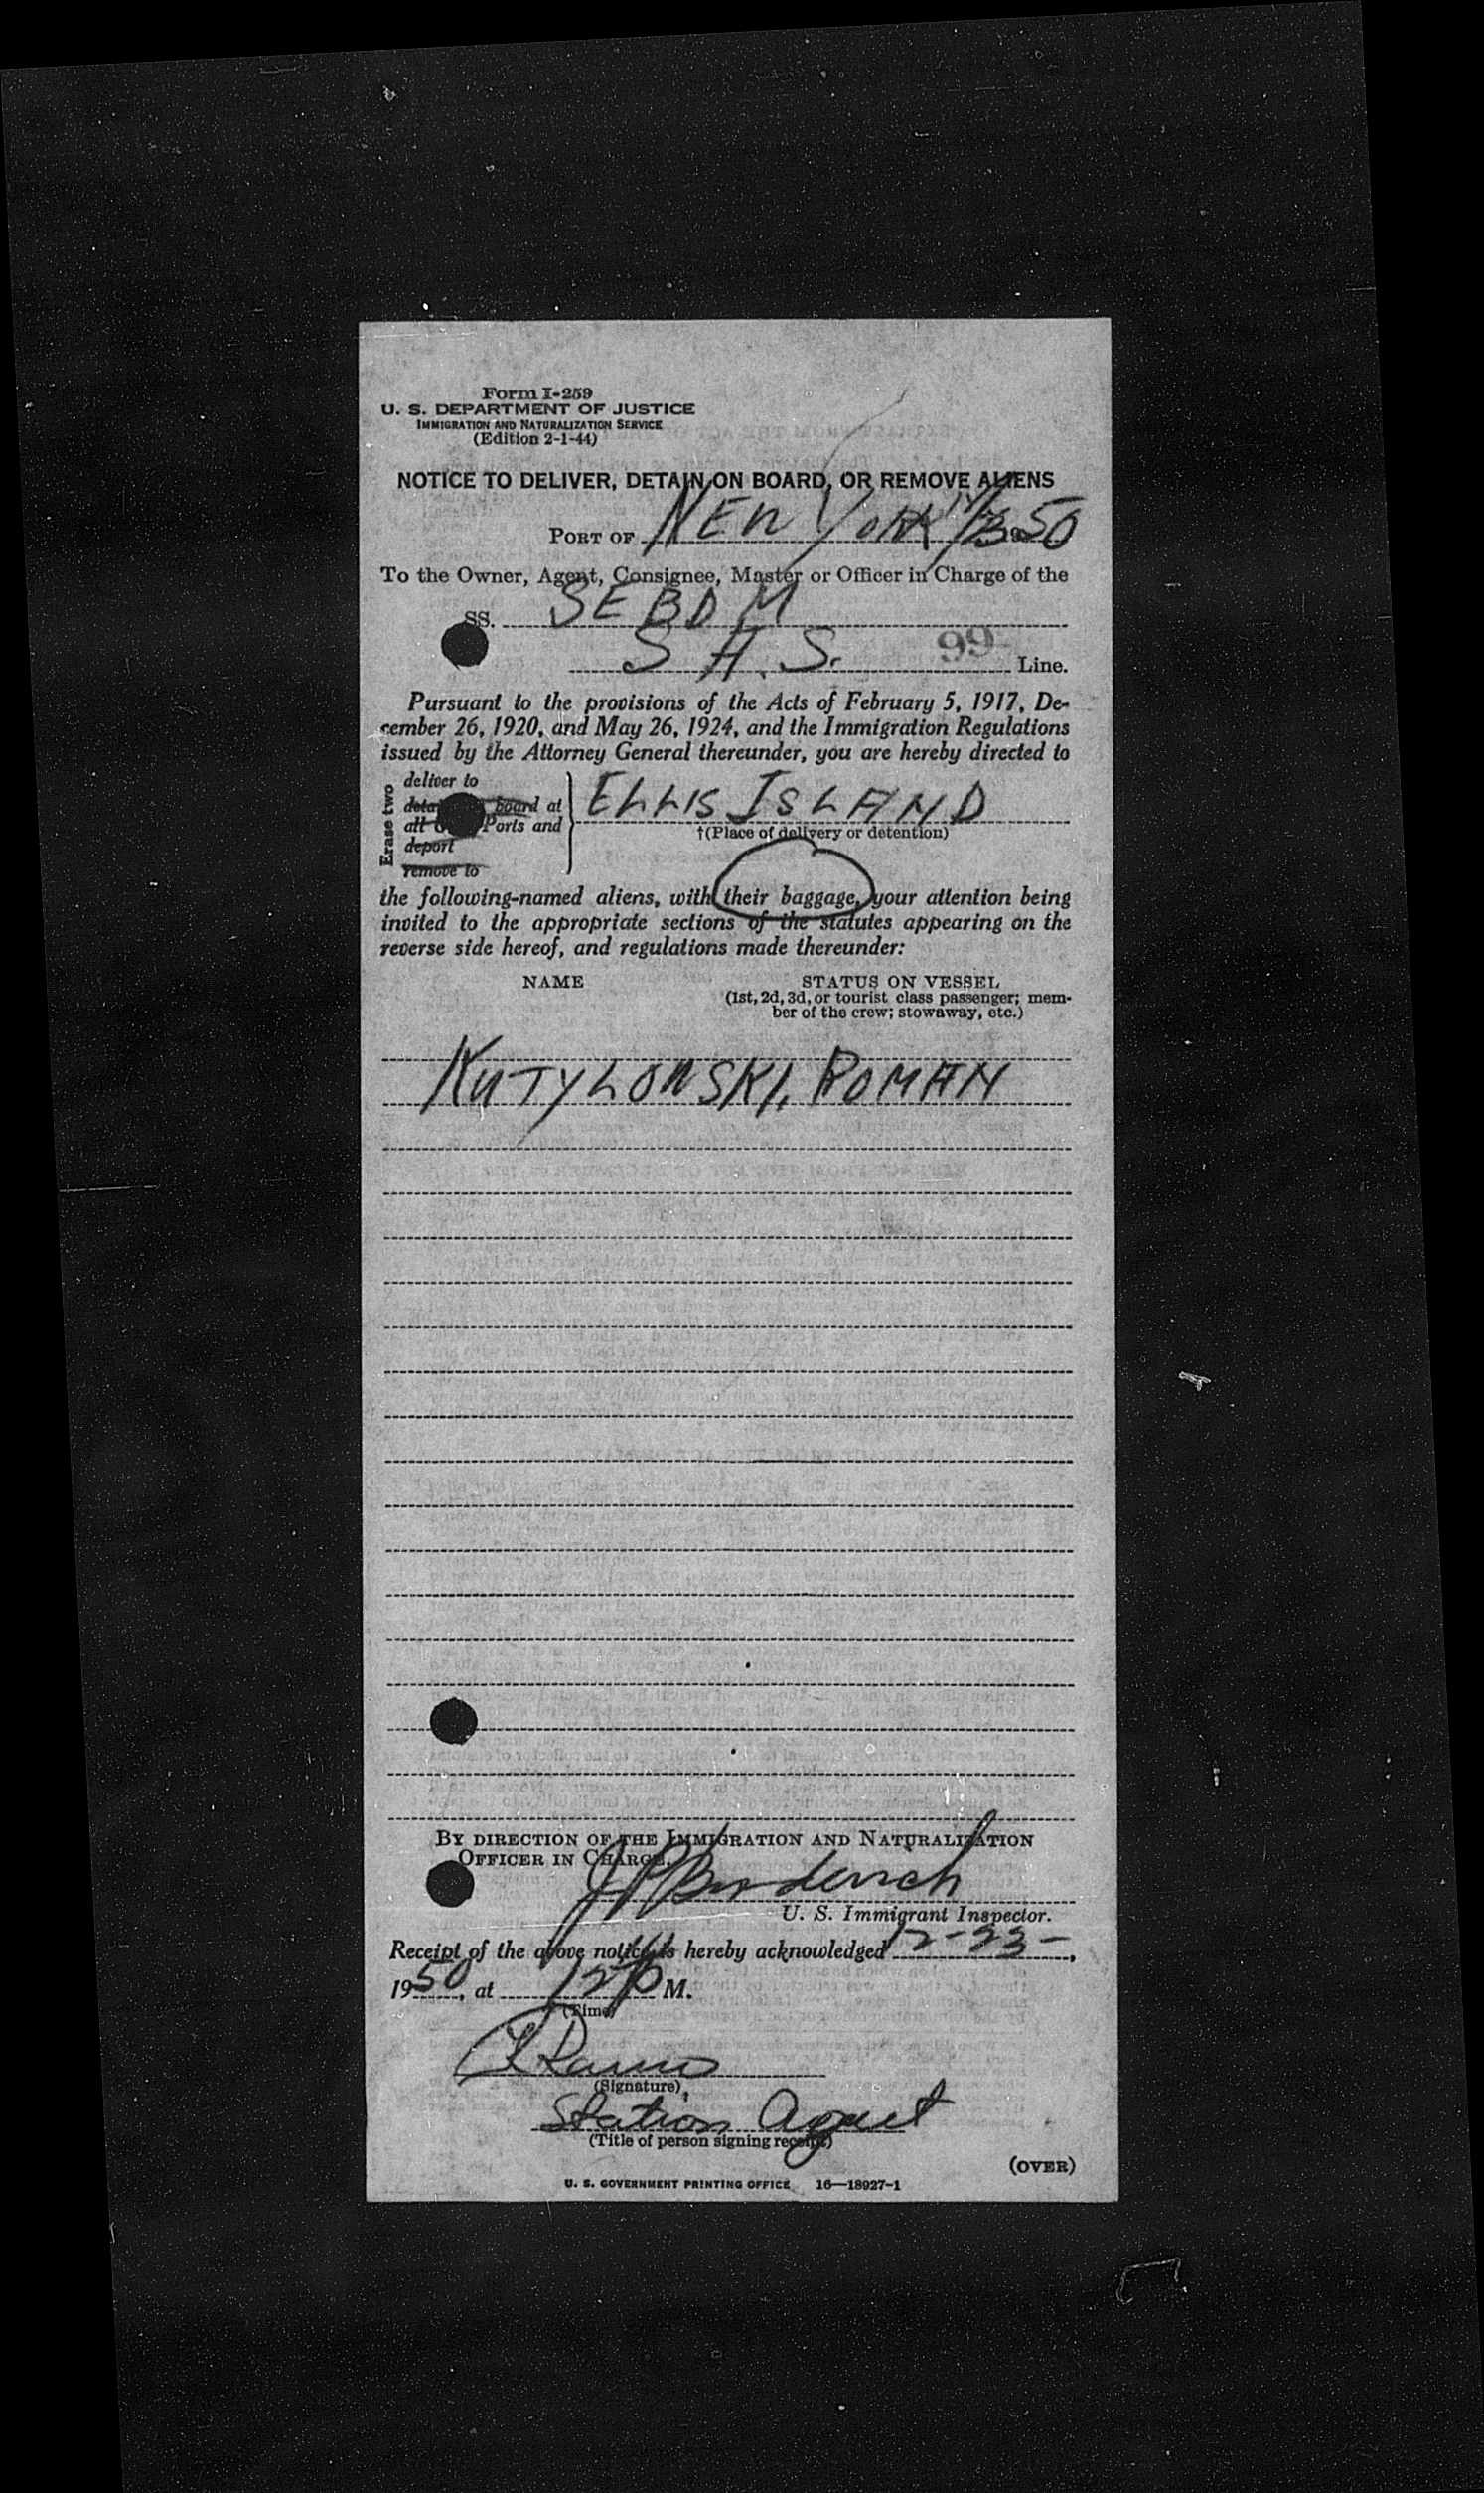 Form I-259
U. S. DEPARTMENT OF JUSTICE
IMMIGRATION AND NATURALIZATION SERVICE
(Edition 2-1-44)
NOTICE TO DELIVER, DETAIN ON BOARD, OR REMOVE ALIENS
PORT OF NEW YORK 50
To the Owner, Agent, Consignee, Master or Officer in Charge of the
SS. SEBDM
S A. S. 99 Line.
Pursuant to the provisions of the Acts of February 5, 1917, De-
cember 26, 1920, and May 26, 1924, and the Immigration Regulations
issued by the Attorney General thereunder, you are hereby directed to
Erase two
deliver to
board at
all Ports and
deport
remove to
ELLIS ISLAND
†(Place of delivery or detention)
the following-named aliens, with their baggage, your attention being
invited to the appropriate sections of the statutes appearing on the
reverse side hereof, and regulations made thereunder:
NAME STATUS ON VESSEL
(1st, 2d, 3d, or tourist class passenger; mem-
ber of the crew; stowaway, etc.)
KUTYLOWSKI, ROMAN
BY DIRECTION OF THE IMMIGRATION AND NATURALIZATION
OFFICER IN CHARGE.
U. S. Immigrant Inspector.
Receipt of the above notice is hereby acknowledged 12-23-,
1950, at 12 P M.
(Time)
(Signature)
Station Agent
(Title of person signing receipt)
(OVER)
U. S. GOVERNMENT PRINTING OFFICE 16—18927-1